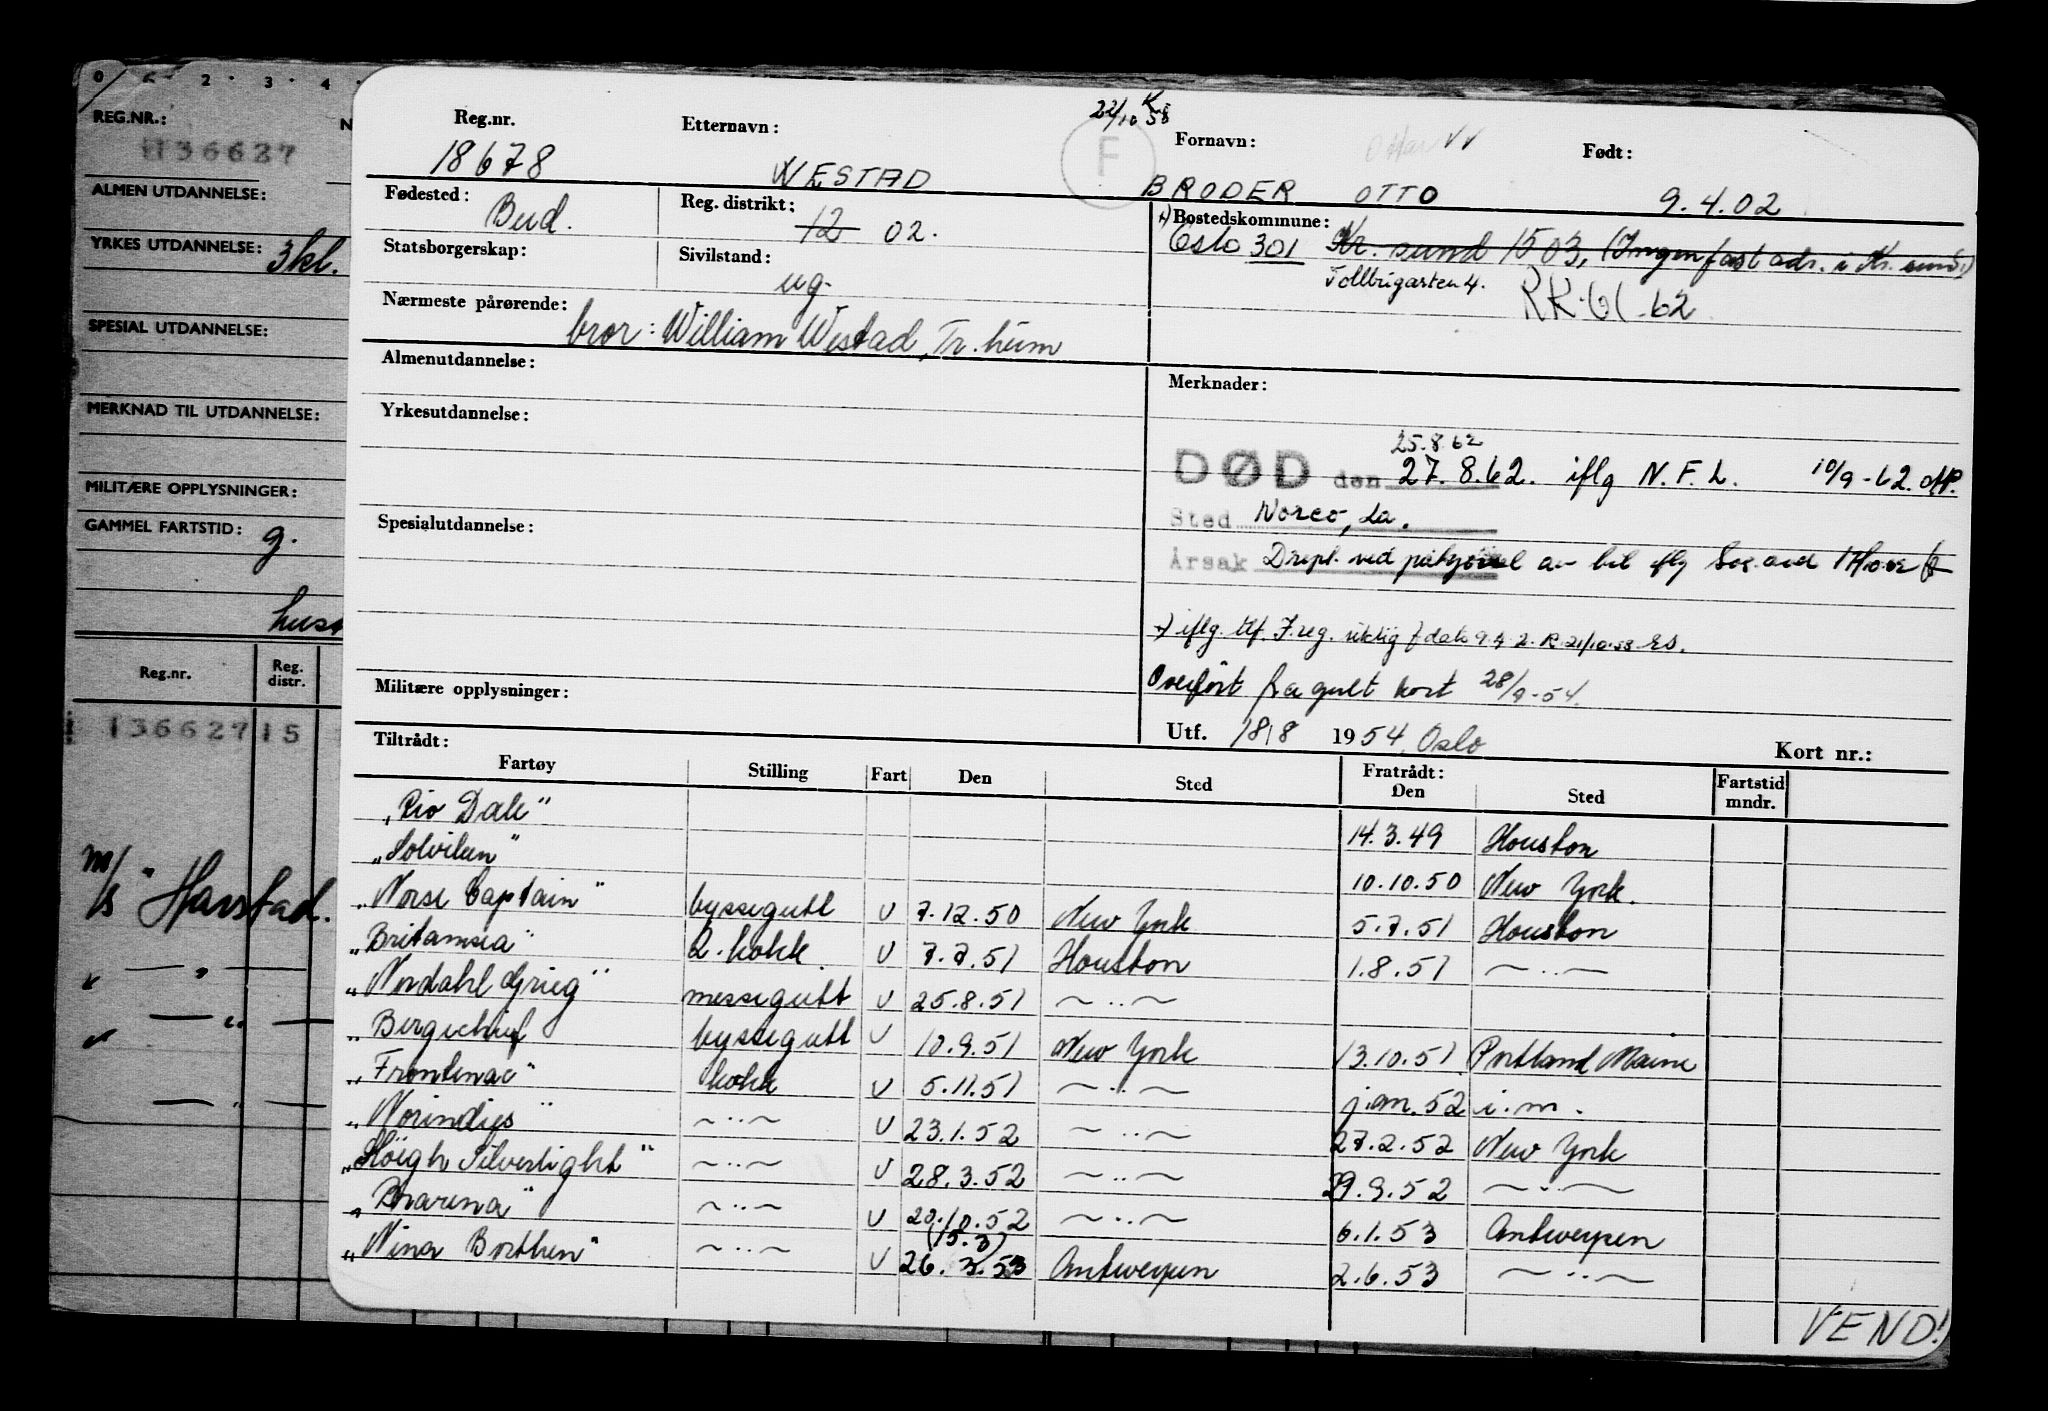 0 2 3 4
REG.NR.:
136627
ALMEN UTDANNELSE:
YRKES UTDANNELSE: 3kl.
SPESIAL UTDANNELSE:
MERKNAD TIL UTDANNELSE:
MILITÆRE OPPLYSNINGER:
GAMMEL FARTSTID: g.
Reg.nr. Reg. distr.
136627 15
m/s "Harstad
— " —
— " —
— " —
22/10 58
F
Reg.nr. Etternavn: Fornavn: Født:
18678 WESTAD BRODER OTTO 9.4.02
Fødested: Bud. Reg. distrikt: 12 02. Bostedskommune:
Oslo 301 Kr. sund 1503, (Ingen fast adr. i Kr. sund)
Statsborgerskap: Sivilstand: ug. Tollbugarten 4.
RK-61-62
Nærmeste pårørende: bror: William Westad, Tr.heim
Almenutdannelse: Merknader:
Yrkesutdannelse:
25.8.62
DØD den 27.8.62. iflg N.F.L. 10/9-62.
Sted Norco, La.
Spesialutdannelse:
Årsak Drept ved påkjørsel av bil iflg
iflg. tlf. F.reg. riktig f dato 9.4.2. 21/10-58
Overført fra gult kort 28/9-54.
Militære opplysninger:
Utf. 18/8 1954, Oslo Kort nr.:
Tiltrådt: Fratrådt:
Fartøy Stilling Fart Den Sted Den Sted Fartstid mndr.
"Rio Dale" 14.3.49 Houston
"Solviken" 10.10.50 New York.
"Norse Captain" byssegutt U 7.12.50 New York 5.7.51 Houston
"Britamsea" 2. kokk U 7.7.51 Houston 1.8.51 — " —
"Nordahl Grieg" messegutt U 25.8.51 — " —
"Bergechief byssegutt U 10.9.51 New York 13.10.51 Portland Maine
"Frontenac" kokk U 5.11.51 — " — jan. 52 i.m.
"Norindies" — " — U 23.1.52 — " — 27.2.52 New York
"Høegh Silverlight" — " — U 28.3.52 — " — 29.9.52 — " —
— " — U 20.10.52 — " — 6.1.53 Antwerpen
(15.3)
"Nina Borthen" — " — U 26.3.53 Antwerpen 2.6.53 — " —
VEND!